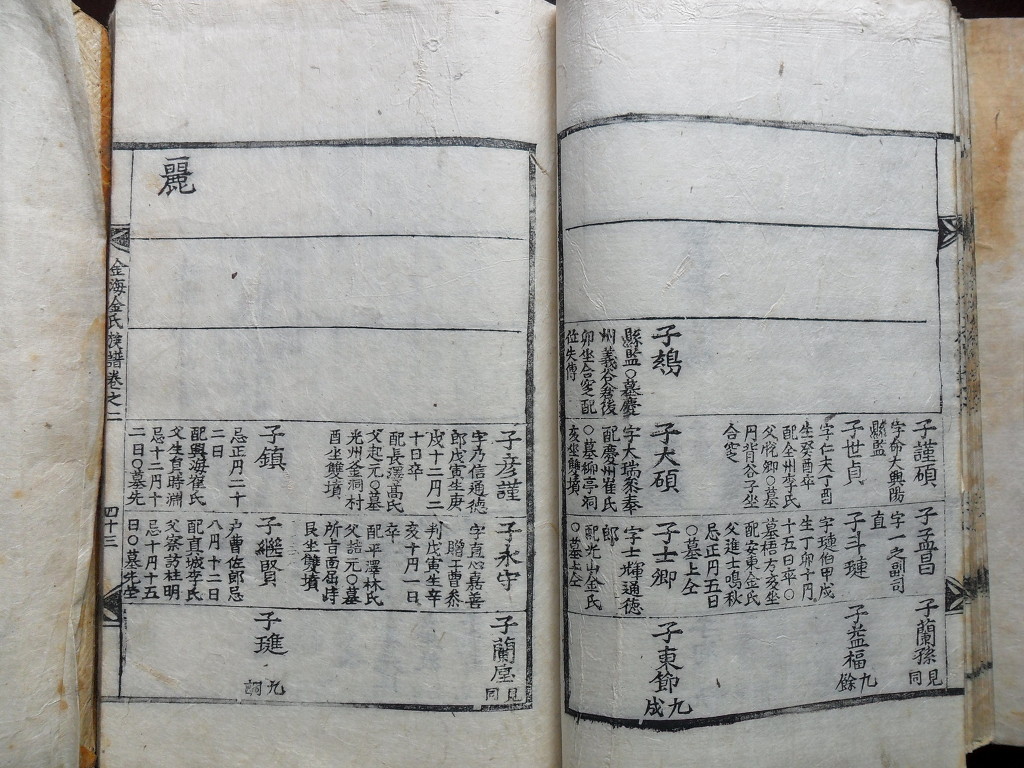 子鷍
縣監〇墓慶
州義谷舂後
卯坐合窆配
位失傳
子謹碩
字命大興陽
縣監
子世貞
字仁夫丁酉
生癸酉卒
配全州李氏
父悅卿〇墓
円背谷子坐
合窆
子大碩
字大瑞彔奉
配慶州崔氏
〇墓柳亭洞
亥坐雙墳
子孟昌
字一之副司
直
子斗璉
字璉伯甲戌
生丁卯十円
十五日卒〇
墓梧方亥坐
配安東金氏
父進士鳴秋
忌正円五日
〇墓上仝
子士卿
字士輝通德
郎
配光山金氏
〇墓上仝
子蘭孫
見同
子益福
九餘
子東節
九成
麗
子彦謹
字乃信通德
郎戊寅生庚
戌十二円二
十日卒
配長澤高氏
父起元〇墓
光州金洞村
酉坐雙墳
子鎮
忌正円二十
二日
配興海崔氏
父生員時淵
忌十二円十
二日〇墓先
子永守
字直心嘉善
贈工曹叅
判戊寅生辛
亥十円一日
卒
配平澤林氏
父誥元〇墓
所百面屈峙
艮坐雙墳
子繼賢
户曹佐郎忌
八円十二日
配眞城李氏
父察訪杜明
忌十円十五
日〇墓先塋
子蘭壓
見同
子璡
九詞
金海金氏族譜卷之二
四十三